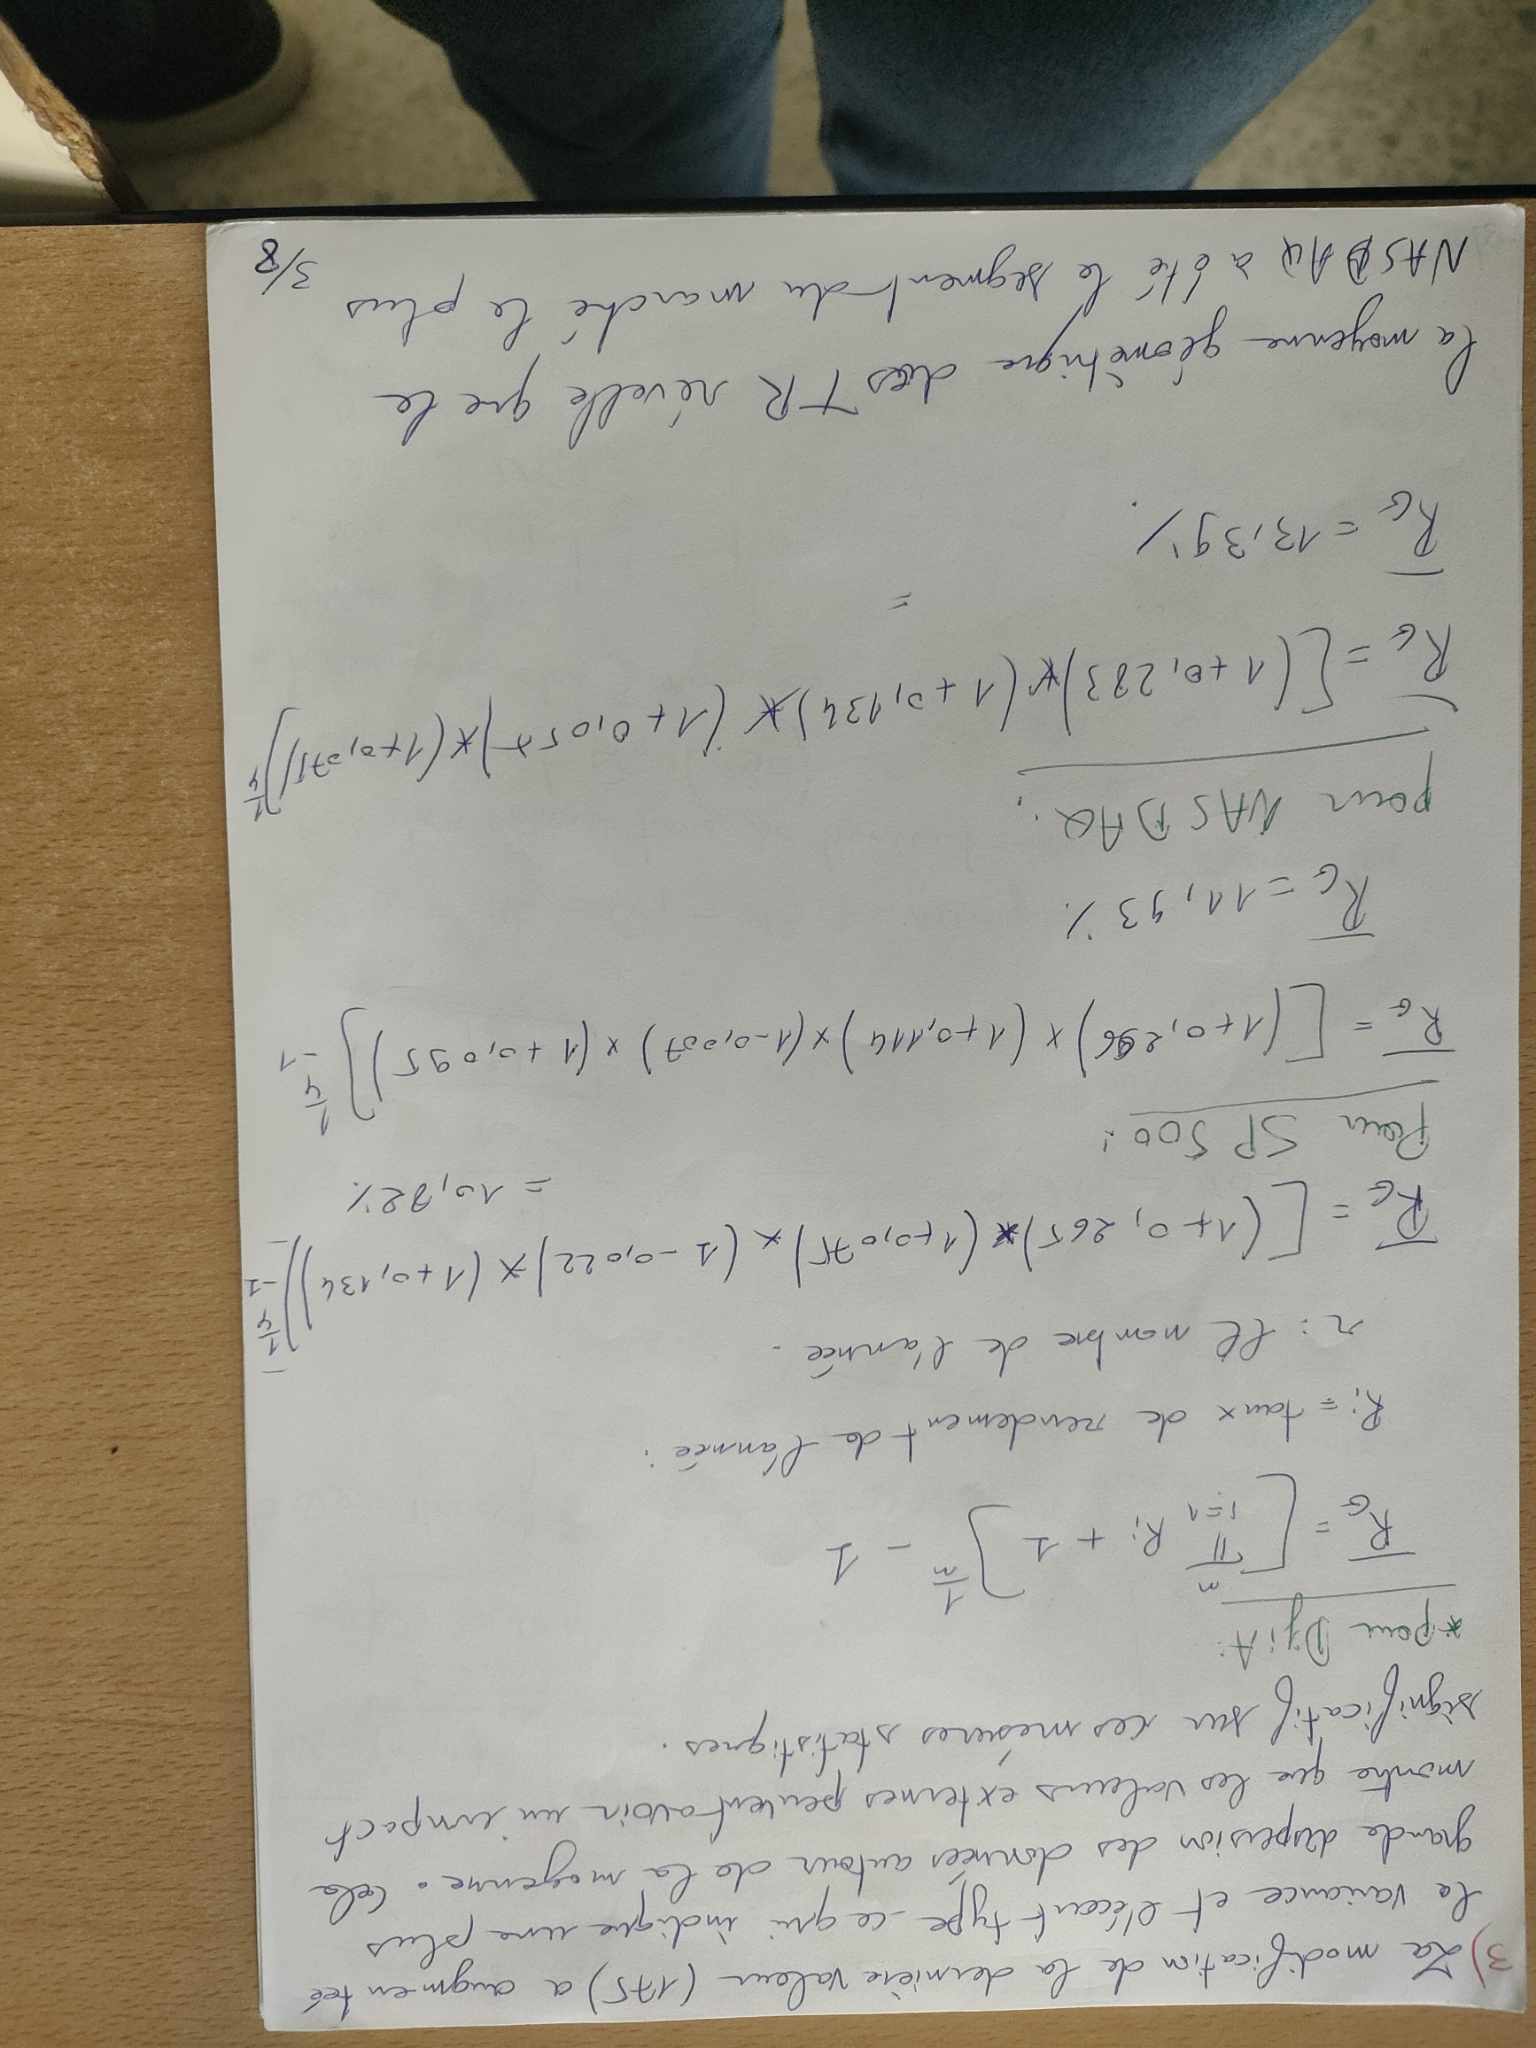 3) La modification de la dernière valeur (175) a augmenteé
la variance et l'écart type ce qui indique une plus
grande dispersion des données autour de la moyenne. Cela
montre que les valeurs externes peuvent avoir un impact
significatif sur les mesures statistiques.
* pour DjiA:
R̅G = [ n π i=1 Ri + 1 ]^1/n - 1
Ri = taux de rendement de l'année i
n: le nombre de l'année.
R̅G = [(1+0,265)*(1+0,075)x(1-0,022)x(1+0,134)]^1/4 -1
= 10,82%
Pour SP 500:
R̅G = [(1+0,296)x(1+0,114)x(1-0,007)x(1+0,095)]^1/4 -1
R̅G = 11,93%
pour NASDAQ:
R̅G = [(1+0,283)*(1+0,134)*(1+0,057)*(1+0,075)]^1/4
=
R̅G = 13,39%.
la moyenne géométrique des TR révelle que le
NASDAQ a été le segment du marché le plus
3/8